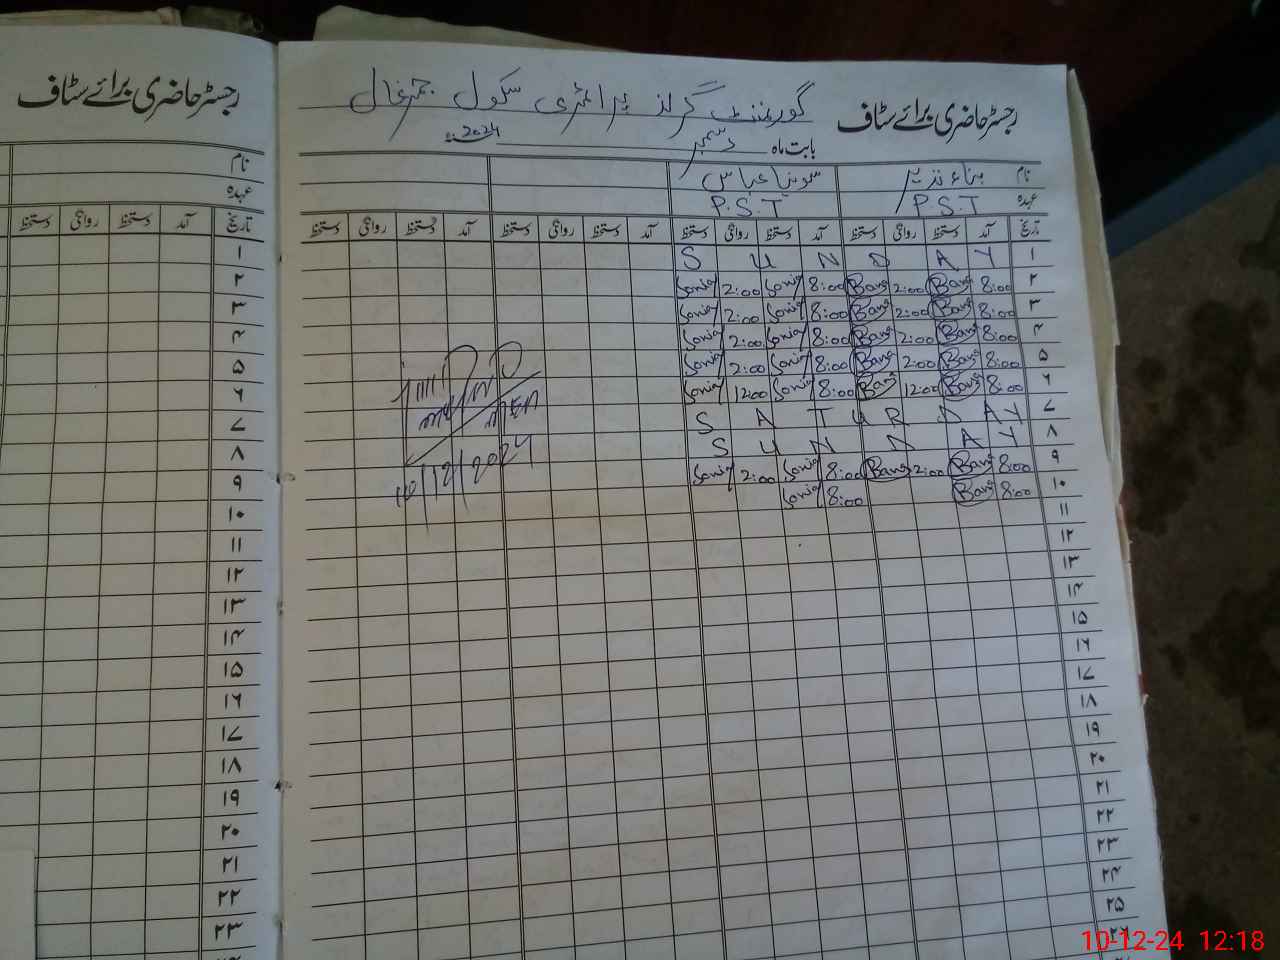 رجسٹر حاضری برائے سٹاف
نام
عہدہ
تاریخ آمد دستخط روانگی دستخط
۱
۲
۳
۴
۵
۶
۷
۸
۹
۱۰
۱۱
۱۲
۱۳
۱۴
۱۵
۱۶
۱۷
۱۸
۱۹
۲۰
۲۱
۲۲
۲۳
رجسٹر حاضری برائے سٹاف گورنمنٹ گرلز پرائمری سکول
بابت ماہ دسمبر 2024ء
نام سونیا عباس
عہدہ P.S.T P.S.T
تاریخ آمد دستخط روانگی دستخط آمد دستخط روانگی دستخط آمد دستخط روانگی دستخط آمد دستخط روانگی دستخط
۱ S U N D A Y
۲ 8:00 Bano 2:00 Bano 8:00 Sonia 2:00 Sonia
۳ 8:00 Bano 2:00 Bano 8:00 Sonia 2:00 Sonia
۴ 8:00 Bano 2:00 Bano 8:00 Sonia 2:00 Sonia
۵ 8:00 Bano 2:00 Bano 8:00 Sonia 2:00 Sonia
۶ 8:00 Bano 12:00 Bano 8:00 Sonia 12:00 Sonia
۷ S A T U R D A Y
۸ S U N D A Y
۹ 8:00 Bano 2:00 Bano 8:00 Sonia 2:00 Sonia
۱۰ 8:00 Bano 8:00 Sonia
10/12/2024
۱۱
۱۲
۱۳
۱۴
۱۵
۱۶
۱۷
۱۸
۱۹
۲۰
۲۱
۲۲
۲۳
۲۴
۲۵
۲۶
10-12-24 12:18